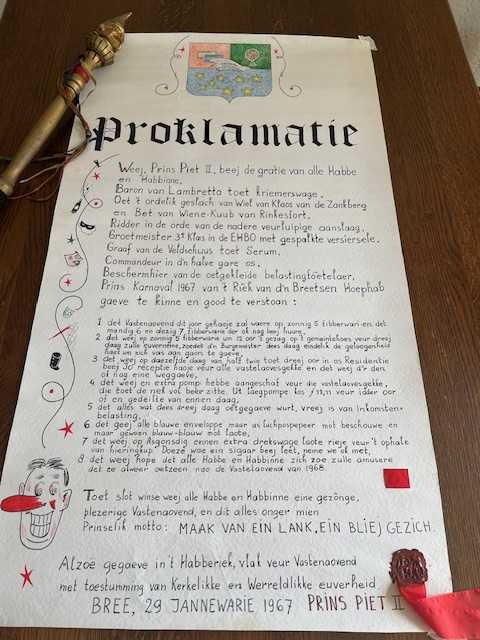 Proklamatie
Weej, Prins Piet II, beej de gratie van alle Habbe
en Habbinne,
Baron van Lambretta toet kriemerswage,
Oet 't ordelik geslach van Wiel van Klaos van de Zankberg
en Bet van Wiene-Kuub van Rinkesfort,
Ridder in de orde van de nadere veurluipige aanslaag,
Groetmeister 3e Klas in de EHBO met gespalkte versiersele.
Graaf van de Veldschuus toet Serum.
Commandeur in d'n halve gare os.
Beschermhier van de oetgekleide belastingbetaeler.
Prins Karnaval 1967 van 't Riek van d'n Breetsen Hoephab
gaeve te kinne en good te verstoan :
1 det Vastenaovend dit jaor gehaoje zal waere op zonnig 5 fibberwari en det
mandig 6 en deizig 7 fibberwarie der of nag beej huure.
2 det weej op zonnig 5 fibberwarie um 12 oor 't gezag op 't gemeintehoes veur dreej
daag zulle euvernaeme, zoedet d'n Burgemeister dees daag eindelik de gelaegenheid
haet um zich vas aan gaon te gaeve.
3 det weej op daezelfde daag van half twie toet dreej oor in os Residentie
beej Jo receptie haoje veur alle vastelaovesgekke en det weej d'r den
of nag eine weggaeve.
4 det weej en extra pomp hebbe aangeschaf veur die vastelaovesgekke,
die toet de nek vol bekr zitte. Ut laegpompe kos f 11,11 veur idder oor
of en gedeilte van ennen daag.
5 det alles wat dees dreej daag oetgegaeve wurt, vreej is van Inkomsten-
belasting.
6 det geej alle blauwe enveloppe maar as luchpospepeer mot beschouwe en
maar gewoen blauw-blauw mot laote.
7 det weej op Asgonsdig ennen extra drekswage laote rieje veur 't ophale
van hieringkup. Doezë wae ein sigaar beej leet, neine we ok met.
8 det weej hope det alle Habbe en Habbinne zich zoe zulle amusere
det ze alweer oetzeen nao de Vastelaovend van 1968.
Toet slot winse weej alle Habbe en Habbinne eine gezónge,
plezerige Vastenaovend, en dit alles onger mien
Prinselik motto: MAAK VAN EIN LANK, EIN BLIEJ GEZICH.
Alzoe gegaeve in 't Habberiek, vlak veur Vastenaovend
met toestumming van Kerkelikke en Werreldlikke euverheid
BREE, 29 JANNEWARIE 1967 PRINS PIET II